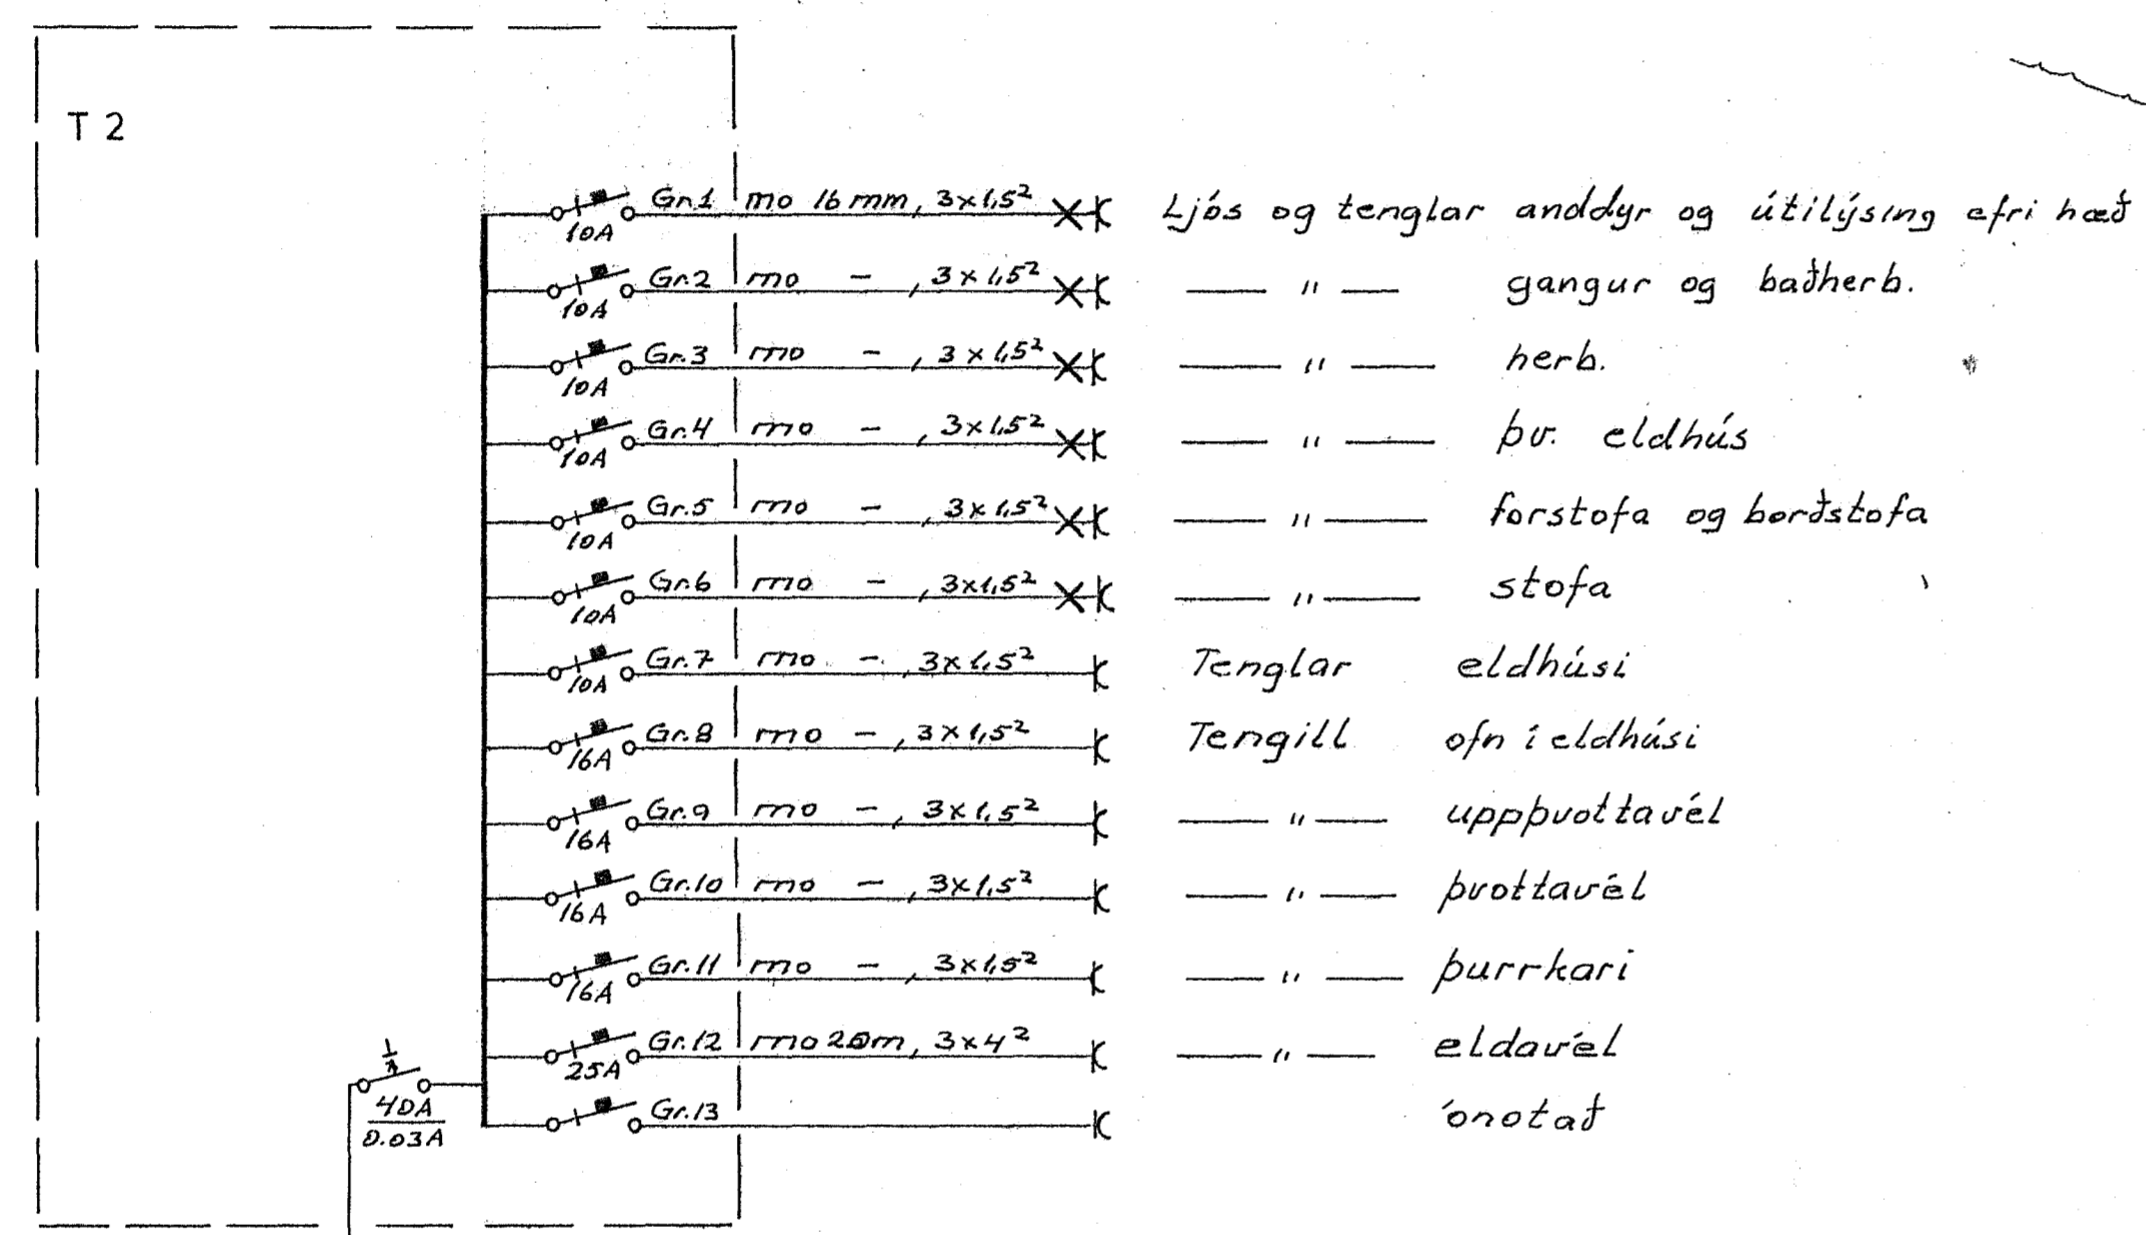 T 2
Gr.1 mo 16 mm, 3x1,5² Ljós og tenglar anddyr og útilýsing efri hæð
10A
Gr.2 mo - , 3x1,5² — " — gangur og baðherb.
10A
Gr.3 mo - , 3x1,5² — " — herb.
10A
Gr.4 mo - , 3x1,5² — " — þv. eldhús
10A
Gr.5 mo - , 3x1,5² — " — forstofa og borðstofa
10A
Gr.6 mo - , 3x1,5² — " — stofa
10A
Gr.7 mo - , 3x1,5² Tenglar eldhúsi
10A
Gr.8 mo - , 3x1,5² Tengill ofn í eldhúsi
16A
Gr.9 mo - , 3x1,5² — " — uppþvottavél
16A
Gr.10 mo - , 3x1,5² — " — þvottavél
16A
Gr.11 mo - , 3x1,5² — " — þurrkari
16A
Gr.12 mo 20m, 3x4² — " — eldavél
25A
40A
0.03A
Gr.13 ónotað